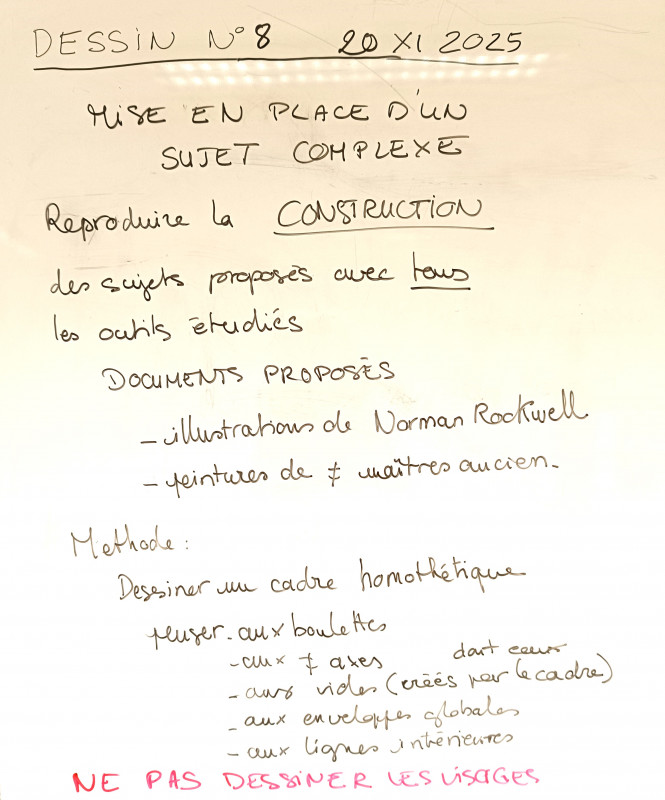 DESSIN N°8 20 XI 2025
MISE EN PLACE D'UN
SUJET COMPLEXE
Reproduire la CONSTRUCTION
des sujets proposés avec tous
les outils étudiés
DOCUMENTS PROPOSÉS
- illustrations de Norman Rockwell
- peintures de ≠ maîtres ancien.
Methode :
Dessiner un cadre homothétique
penser - aux boulettes
- aux ≠ axes
dont ceux
- aux vides (créés par le cadre)
- aux enveloppes globales
- aux lignes intérieures
NE PAS DESSINER LES VISAGES